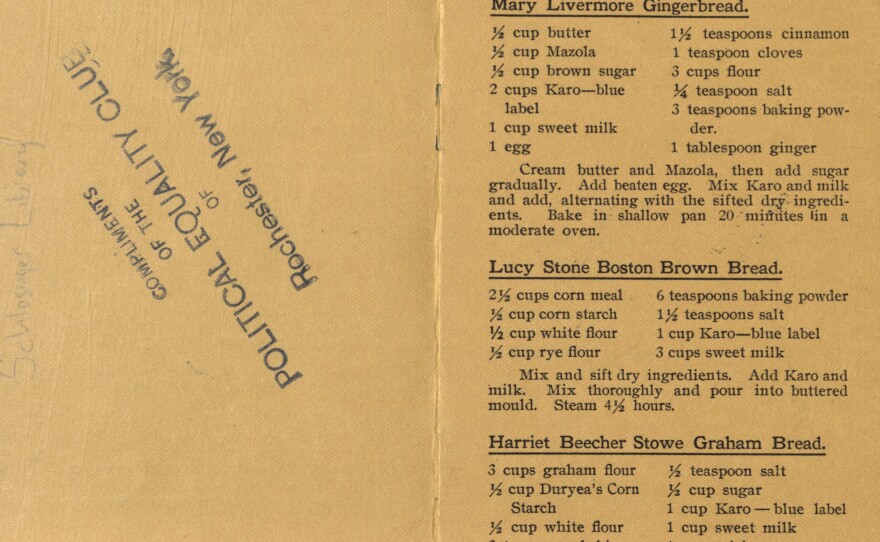 Schlesinger Library
COMPLIMENTS
OF THE
POLITICAL EQUALITY CLUB
OF
Rochester, New York.
Mary Livermore Gingerbread.
½ cup butter
½ cup Mazola
½ cup brown sugar
2 cups Karo—blue
label
1 cup sweet milk
1 egg
1½ teaspoons cinnamon
1 teaspoon cloves
3 cups flour
¼ teaspoon salt
3 teaspoons baking pow-
der.
1 tablespoon ginger
Cream butter and Mazola, then add sugar
gradually. Add beaten egg. Mix Karo and milk
and add, alternating with the sifted dry ingredi-
ents. Bake in shallow pan 20 minutes in a
moderate oven.
Lucy Stone Boston Brown Bread.
2½ cups corn meal
½ cup corn starch
½ cup white flour
½ cup rye flour
6 teaspoons baking powder
1½ teaspoons salt
1 cup Karo—blue label
3 cups sweet milk
Mix and sift dry ingredients. Add Karo and
milk. Mix thoroughly and pour into buttered
mould. Steam 4½ hours.
Harriet Beecher Stowe Graham Bread.
3 cups graham flour
½ cup Duryea's Corn
Starch
½ cup white flour
½ teaspoon salt
½ cup sugar
1 cup Karo — blue label
1 cup sweet milk